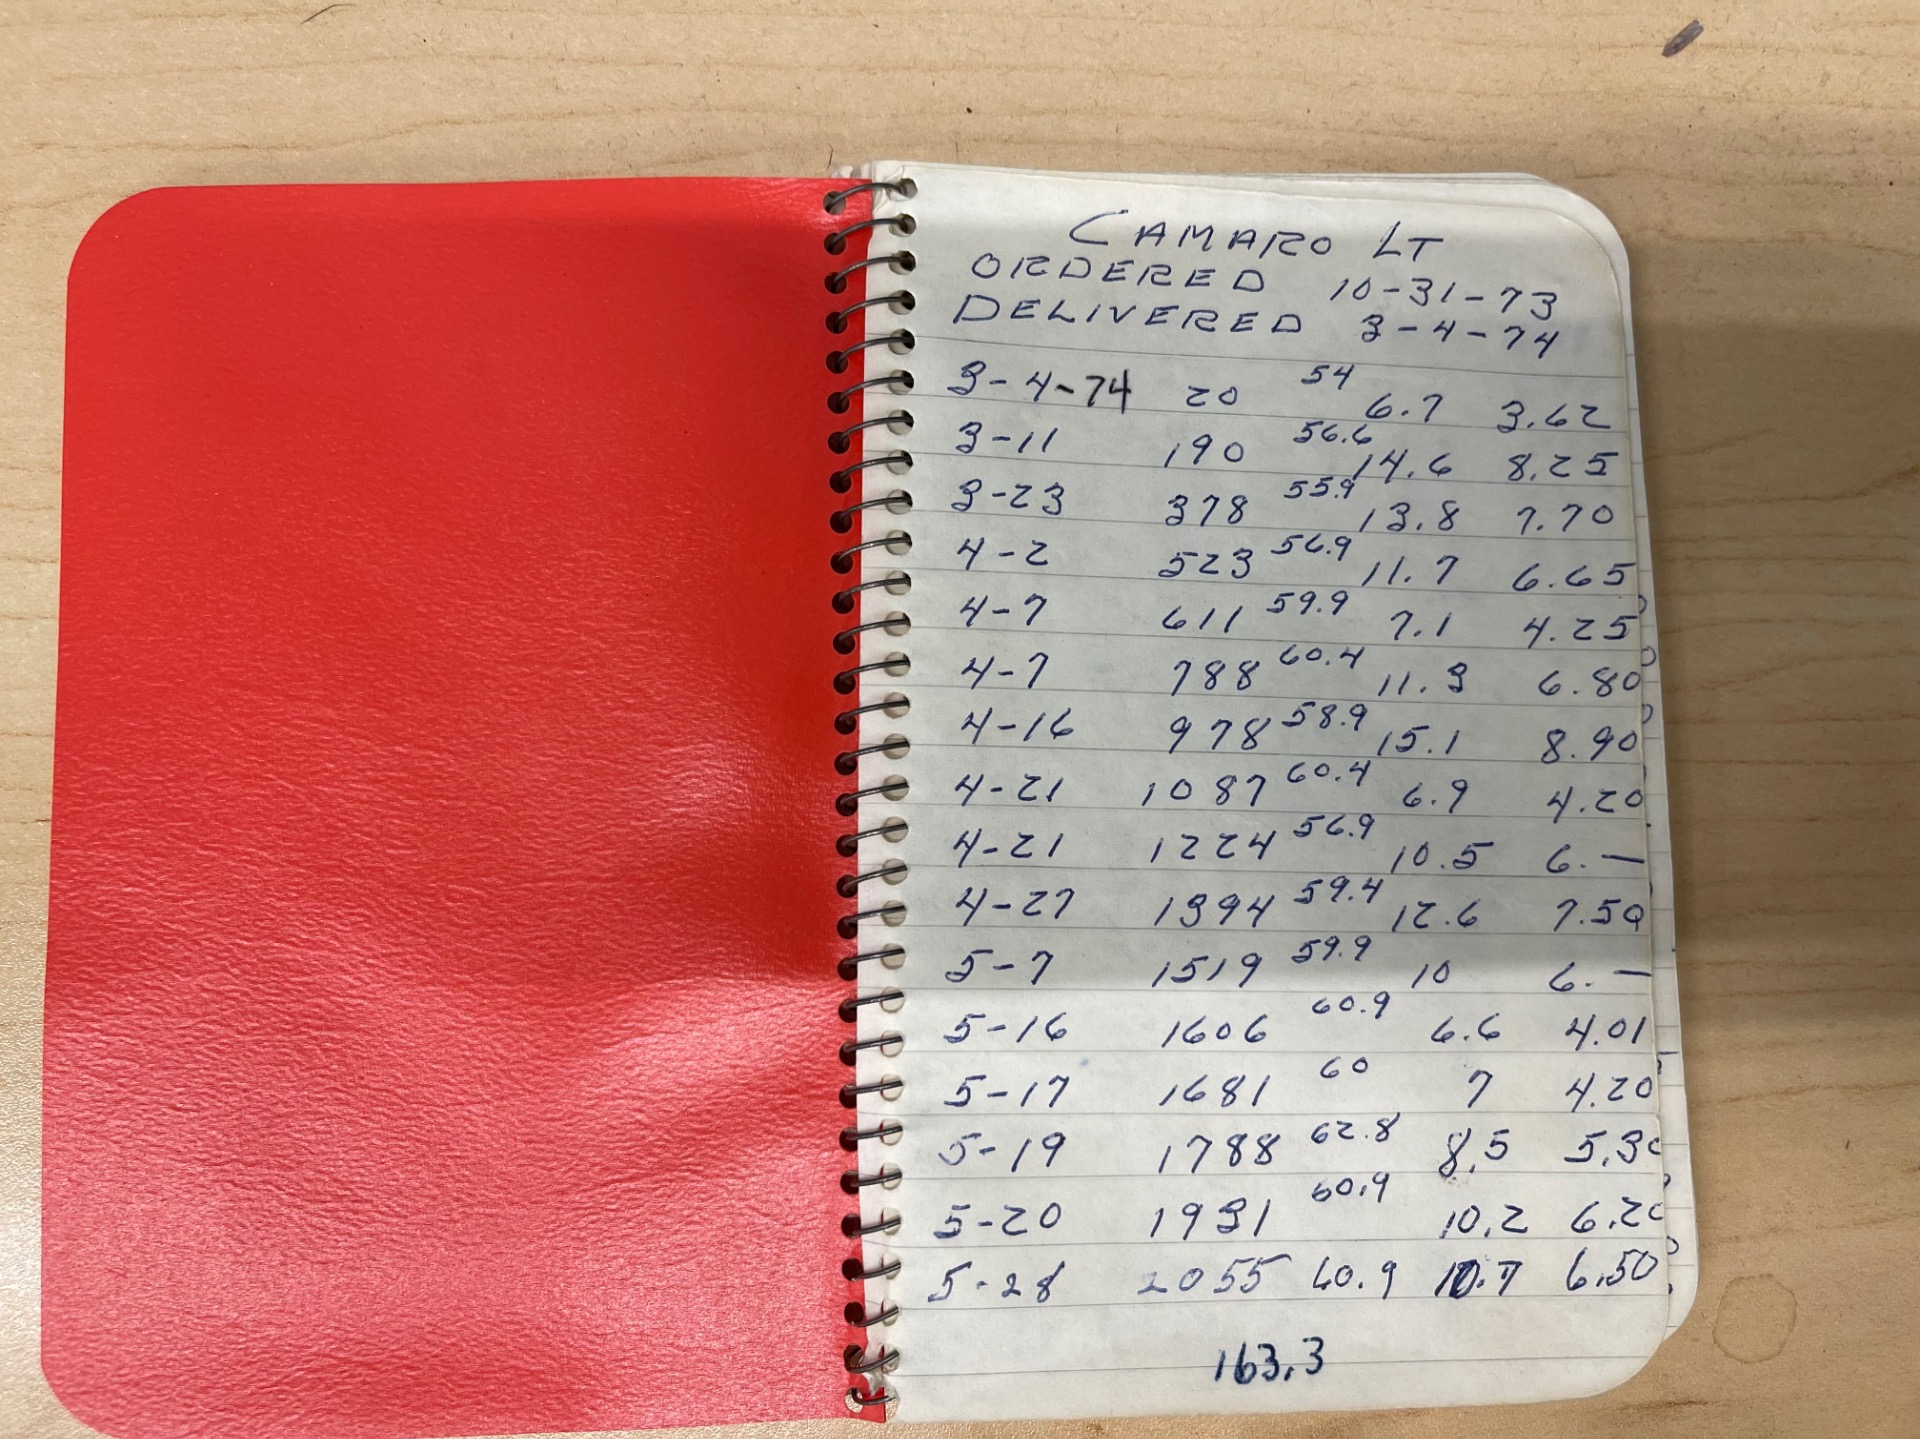 CAMARO LT
ORDERED 10-31-73
DELIVERED 3-4-74
3-4-74 20 54 6.7 3.62
3-11 190 56.6 14.6 8.25
3-23 378 55.9 13.8 7.70
4-2 523 56.9 11.7 6.65
4-7 611 59.9 7.1 4.25
4-7 788 60.4 11.3 6.80
4-16 978 58.9 15.1 8.90
4-21 1087 60.4 6.9 4.20
4-21 1224 56.9 10.5 6.—
4-27 1394 59.4 12.6 7.50
5-7 1519 59.9 10 6.—
5-16 1606 60.9 6.6 4.01
5-17 1681 60 7 4.20
5-19 1788 62.8 8.5 5.30
5-20 1931 60.9 10.2 6.20
5-28 2055 60.9 10.7 6.50
163.3